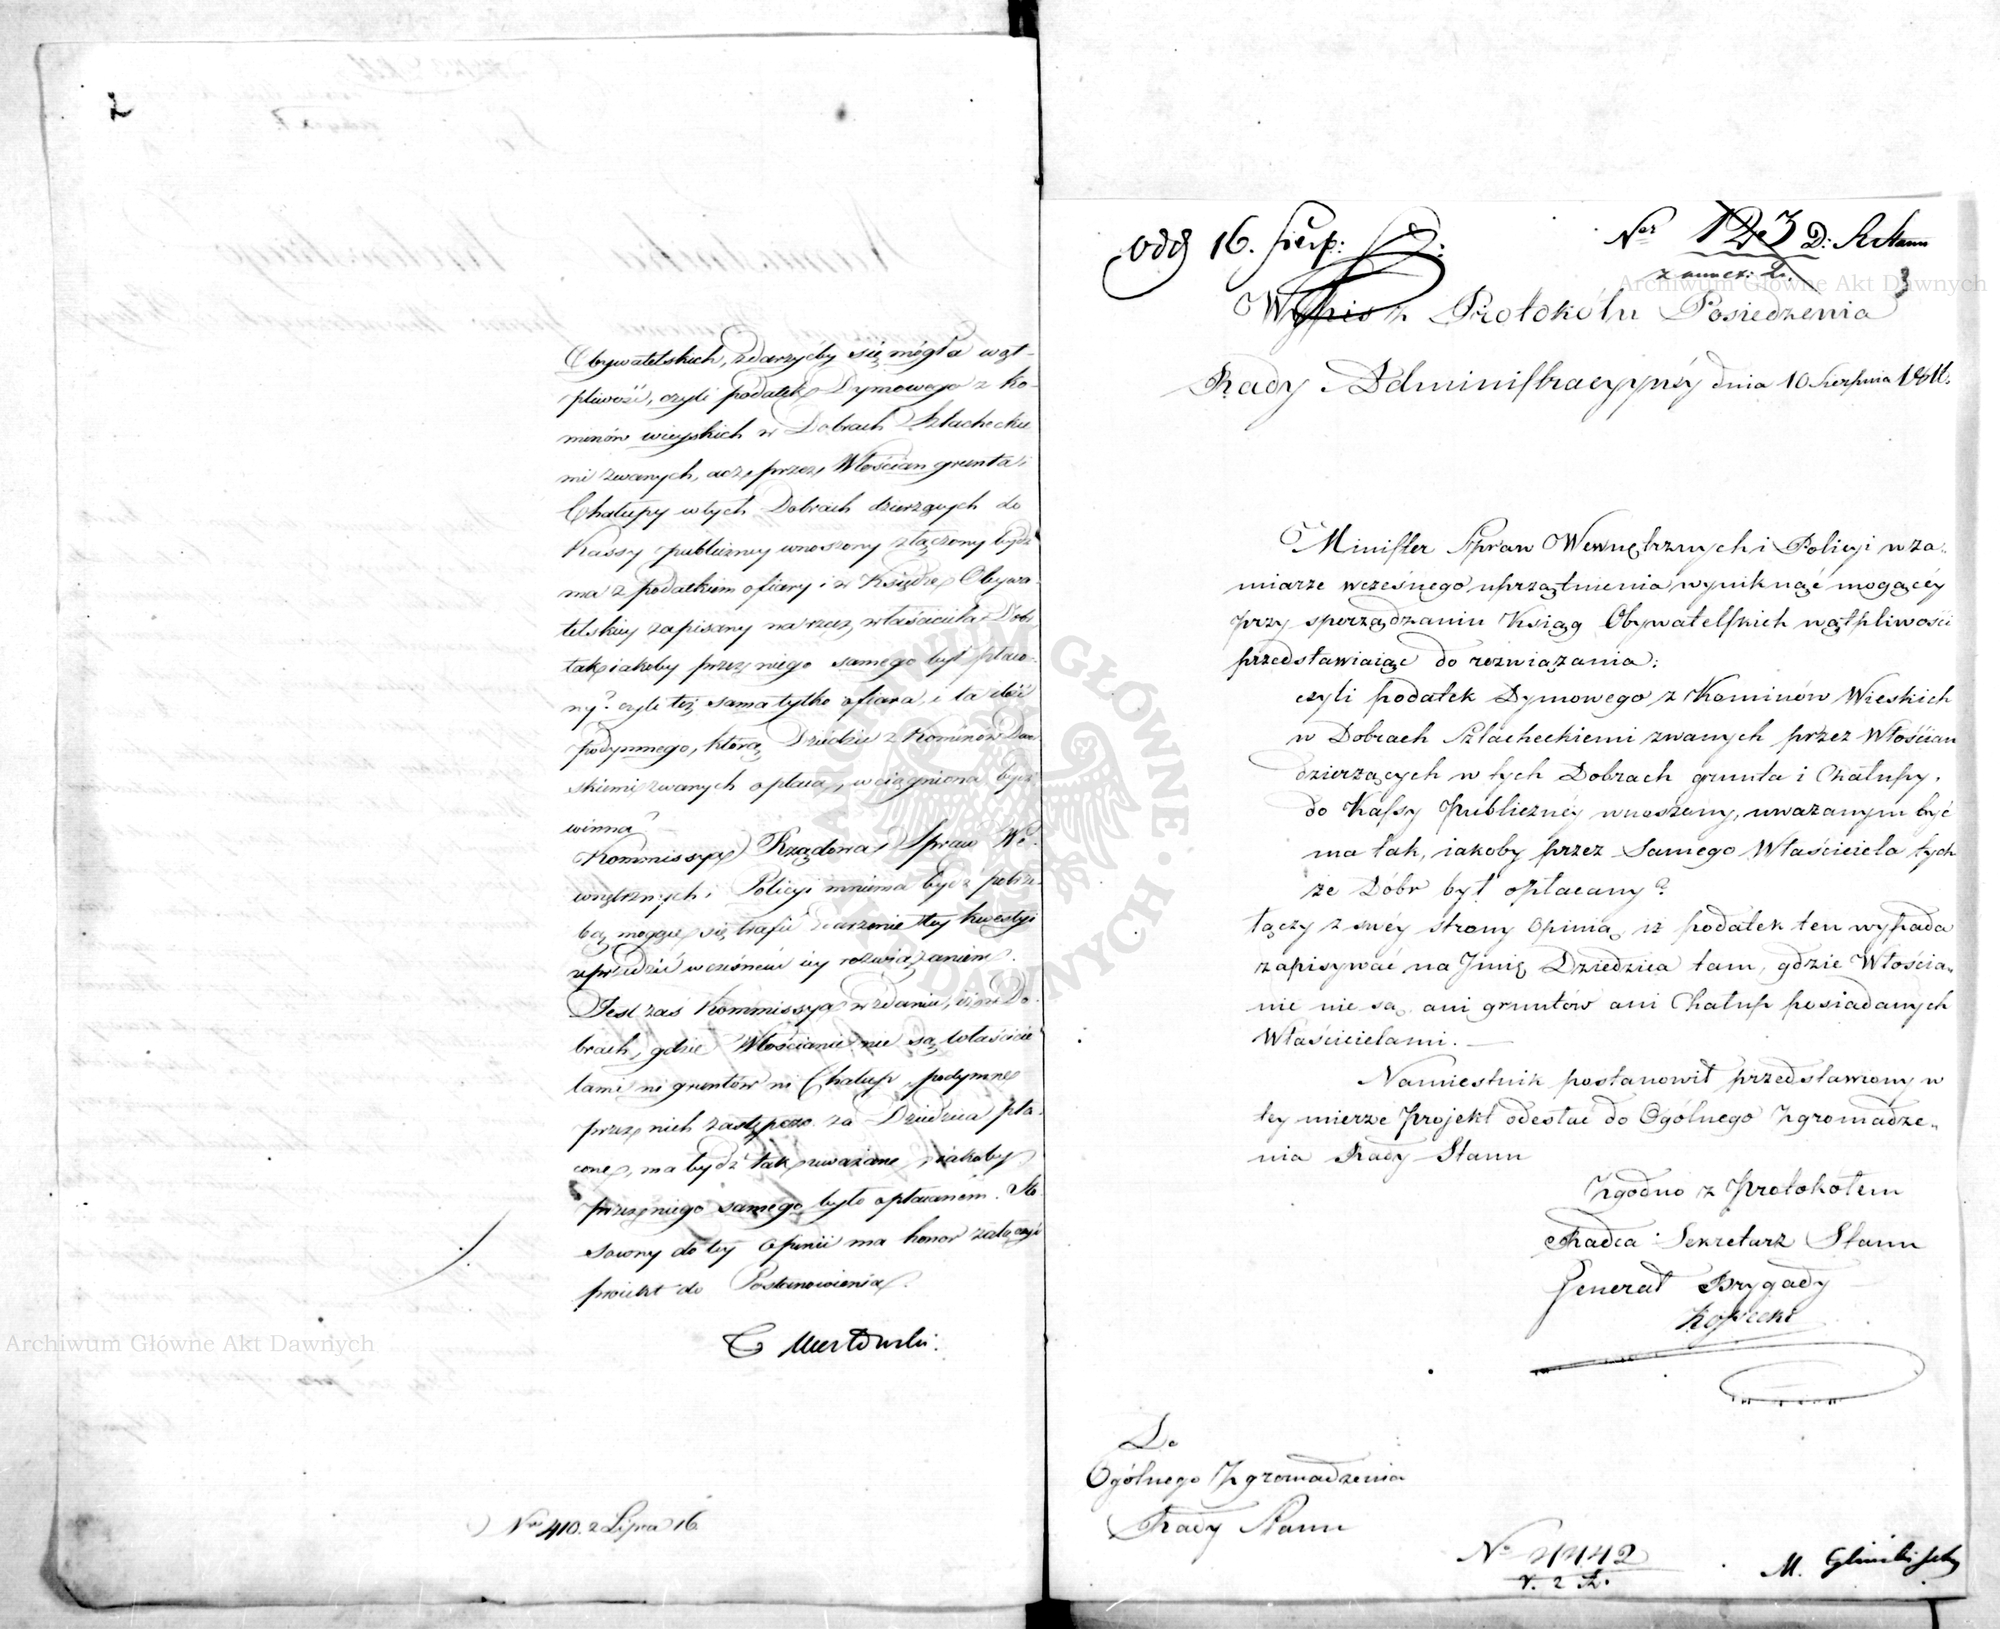 2
Obywatelskich, zdarzyćby się mogła wąt-
pliwość, czyli podatek Dymowego z Ko-
minów wieyskich w Dobrach Szlachecki
mi zwanych, acz przez Włościan grunta i
Chałupy w tych Dobrach dzierżących do
Kassy publiczney wnoszony złączony bydź
ma z podatkiem ofiary i w Księdze Obywa-
telskiey zapisany na rzecz właściciela Dóbr
tak iakoby przez niego samego był płaco-
ny? czyli też sama tylko ofiara, i ta ilość
podymnego, którą Dziedzic z Kominów Dwor
skiemi zwanych opłaca, wciągniona bydź
winna?
Kommissya Rządowa Spraw We-
wnętrznych i Policyi mniema bydź potrze-
bą mogące się trafić zdarzenie tey kwestyi
uprzedzić wczesném iey rozwiązaniem.
Jest zaś Kommissya w zdaniu, iż w Do-
brach, gdzie Włościanie nie są właścicie
lami ni gruntów ni Chałup, podymne
przez nich zastępczo za Dziedzica pła-
cone, ma bydź tak uważane, iakoby
przez niego samego było opłacaném. Sto-
sowny do tey Opinii ma honor załączyć
proiekt do Postanowienia.
T Mostowski:
Nro 410. z Lipca 16
odd 16. Sierp:
Ner 123 D: R. Stanu
z annex: 2.
3
Wypis z Protokółu Posiedzenia
Rady Administracyyney dnia 10 Sierpnia 1816.
Minister Spraw Wewnętrznych i Policyi w za-
miarze wczesnego uprzątnienia wyniknąć mogącéy
przy sporządzaniu Ksiąg Obywatelskich wątpliwości
przedstawiaiąc do rozwiązania:
czyli podatek Dymowego z Kominów Wieskich
w Dobrach Szlacheckiemi zwanych przez Włościan
dzierżących w tych Dobrach grunta i Chałupy,
do Kassy Publicznéy wnoszony, uważanym być
ma tak, iakoby przez Samego Właściciela tych
że Dóbr był opłacany?
łączy z swéy strony Opinią, iż podatek ten wypada
zapisywać na Jmię Dziedzica tam, gdzie Włościa-
nie nie są ani gruntów ani Chałup posiadanych
Właścicielami.
Namiestnik postanowił przedstawiony w
tey mierze Projekt odesłać do Ogólnego Zgromadze-
nia Rady Stanu
Zgodno z Protokołem
Radca Sekretarz Stanu
Generał Brygady
Kossecki
Do
Ogólnego Zgromadzenia
Rady Stanu
No 4442
Archiwum Główne Akt Dawnych
Archiwum Główne Akt Dawnych
ARCHIWUM GŁÓWNE AKT DAWNYCH